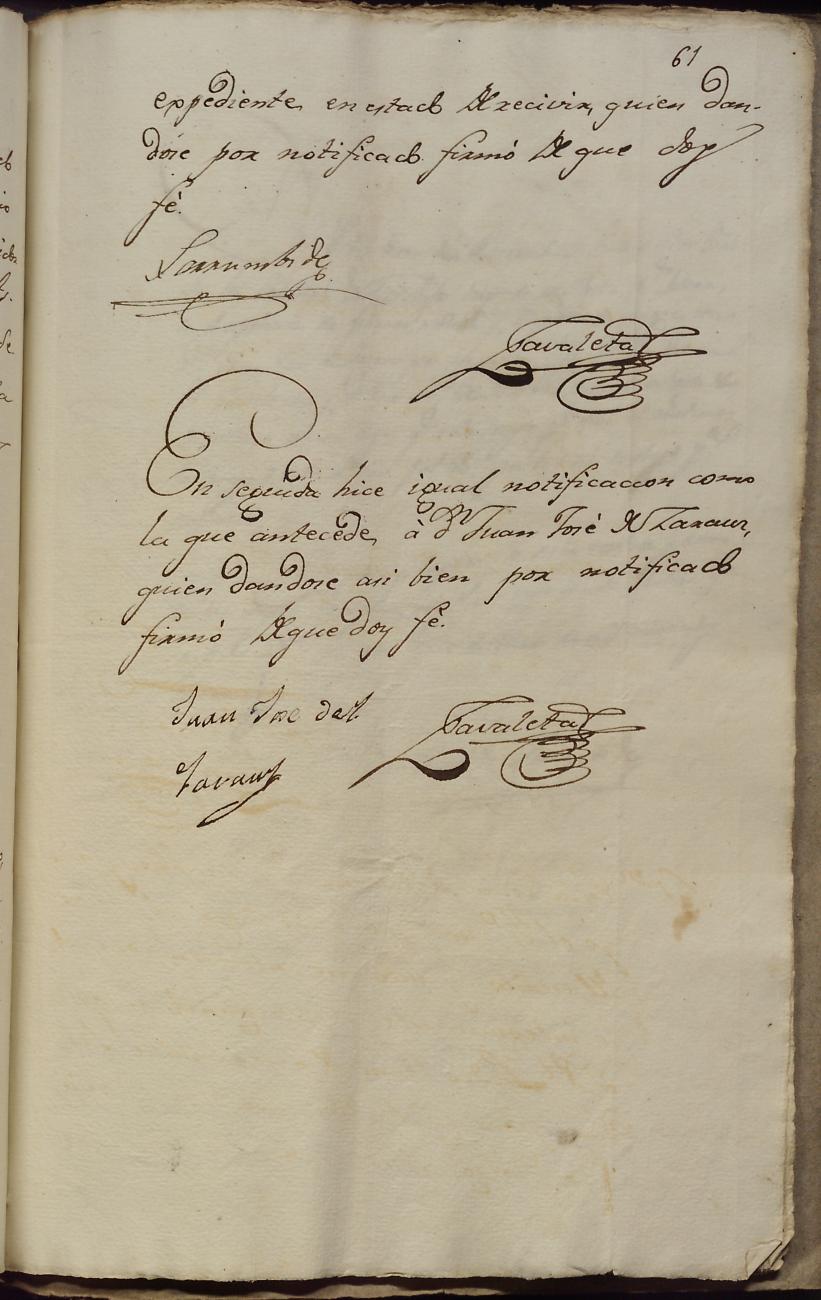 61
expediente en estado de recivir, quien dan-
dose por notificado firmó de que doy
fé.
Larrumbide
Zavaleta
En seguida hice igual notificacion como
la que antecede, à Dn Juan José de Zarauz,
quien dandose asi bien por notificado
firmó de que doy fé.
Juan Jose de
Zarauz
Zavaleta